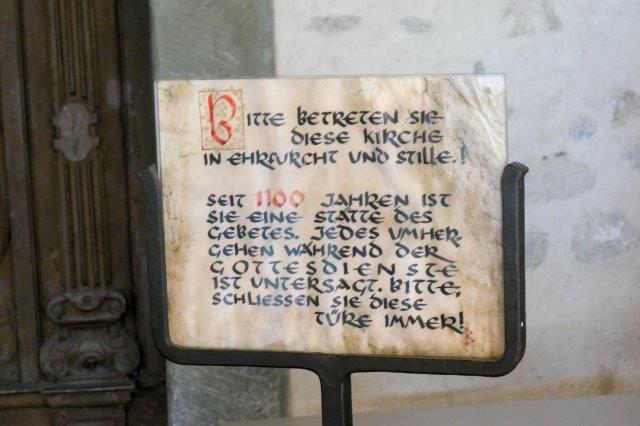 BITTE BETRETEN SIE
DIESE KIRCHE
IN EHRFURCHT UND STILLE.!
SEIT 1100 JAHREN IST
SIE EINE STÄTTE DES
GEBETES. JEDES UMHER-
GEHEN WÄHREND DER
GOTTESDIENSTE
IST UNTERSAGT. BITTE,
SCHLIESSEN SIE DIESE
TÜRE IMMER!